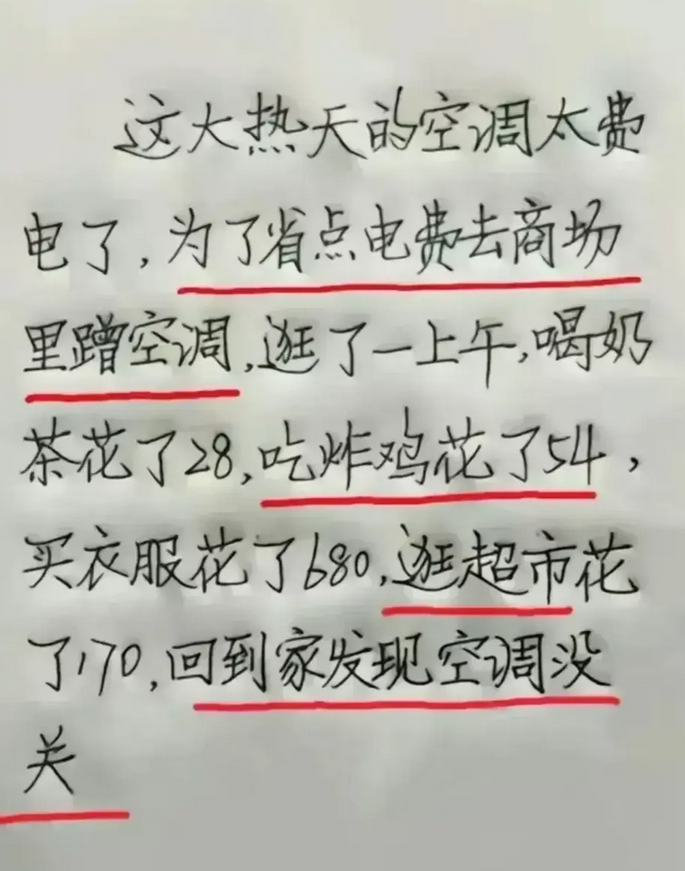 这大热天的空调太费
电了,为了省点电费去商场
里蹭空调,逛了一上午,喝奶
茶花了28,吃炸鸡花了54,
买衣服花了680,逛超市花
了170,回到家发现空调没
关